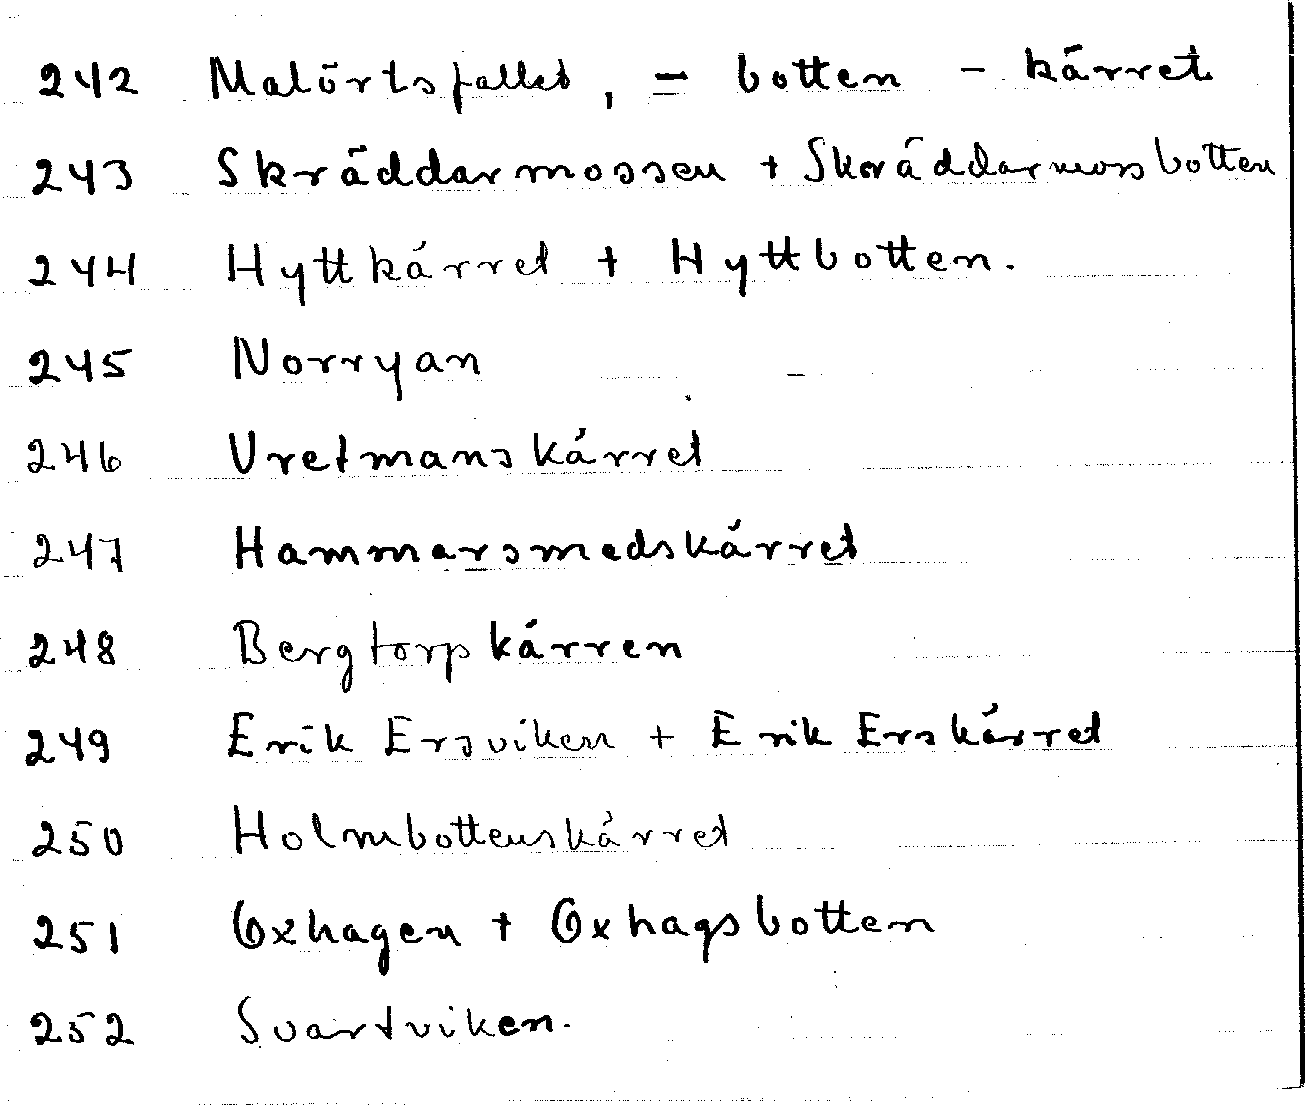 242 Malörtsfallet, = botten - kärret
243 Skräddarmossen + Skräddarmossbotten
244 Hyttkärret + Hyttbotten.
245 Norryan
246 Uretmanskärret
247 Hammarsmedskärret
248 Bergtorpkärren
249 Erik Ersviken + Erik Erskärret
250 Holmbottenskärret
251 Oxhagen + Oxhagsbotten
252 Svartviken.